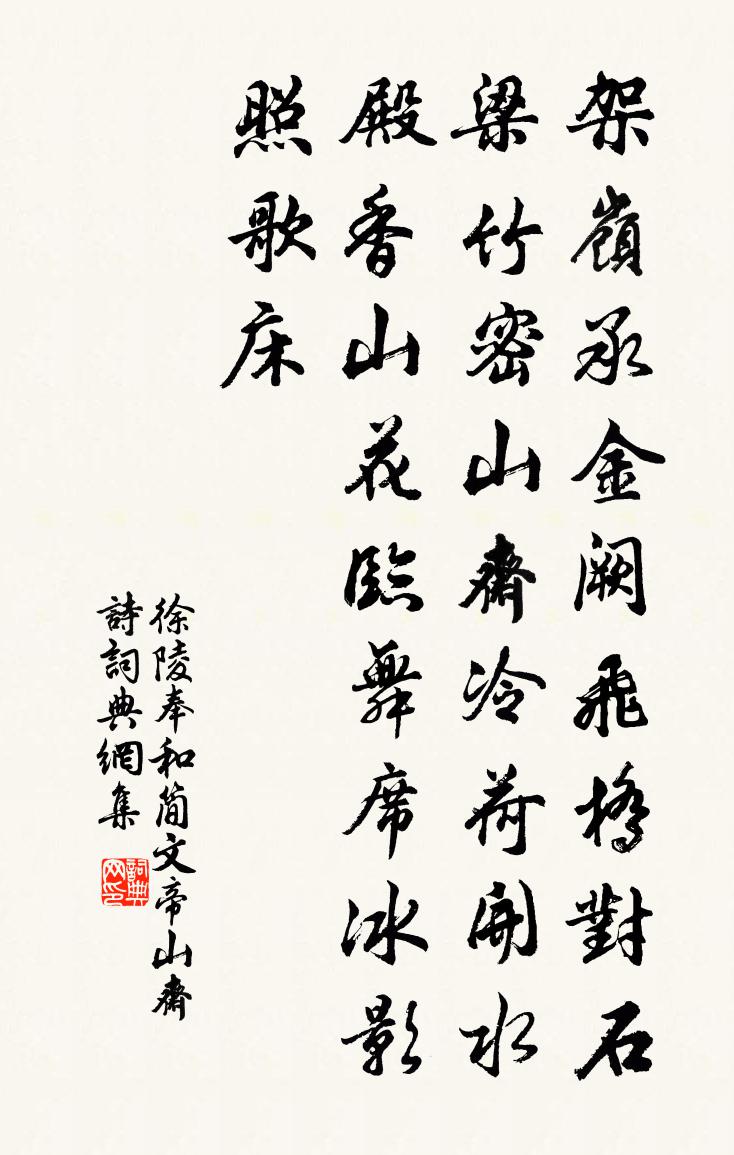 架嶺承金闕飛橋對石
梁竹密山齋冷荷開水
殿香山花臨舞席冰影
照歌床
徐陵奉和简文帝山齋
詩詞典網集
詞典网印